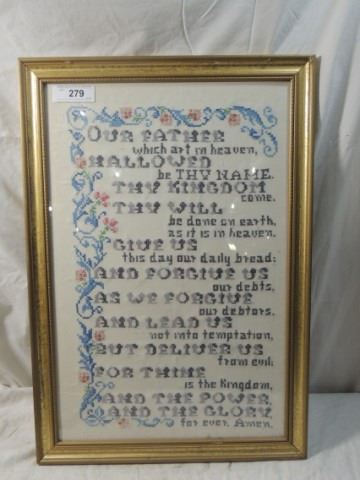 279
OUR FATHER
which art in heaven,
HALLOWED
be THY NAME.
THY KINGDOM
come.
THY WILL
be done on earth,
as it is in heaven.
GIVE US
this day our daily bread:
AND FORGIVE US
our debts,
AS WE FORGIVE
our debtors.
AND LEAD US
not into temptation,
BUT DELIVER US
from evil:
FOR THINE
is the Kingdom,
AND THE POWER,
AND THE GLORY,
for ever. Amen.